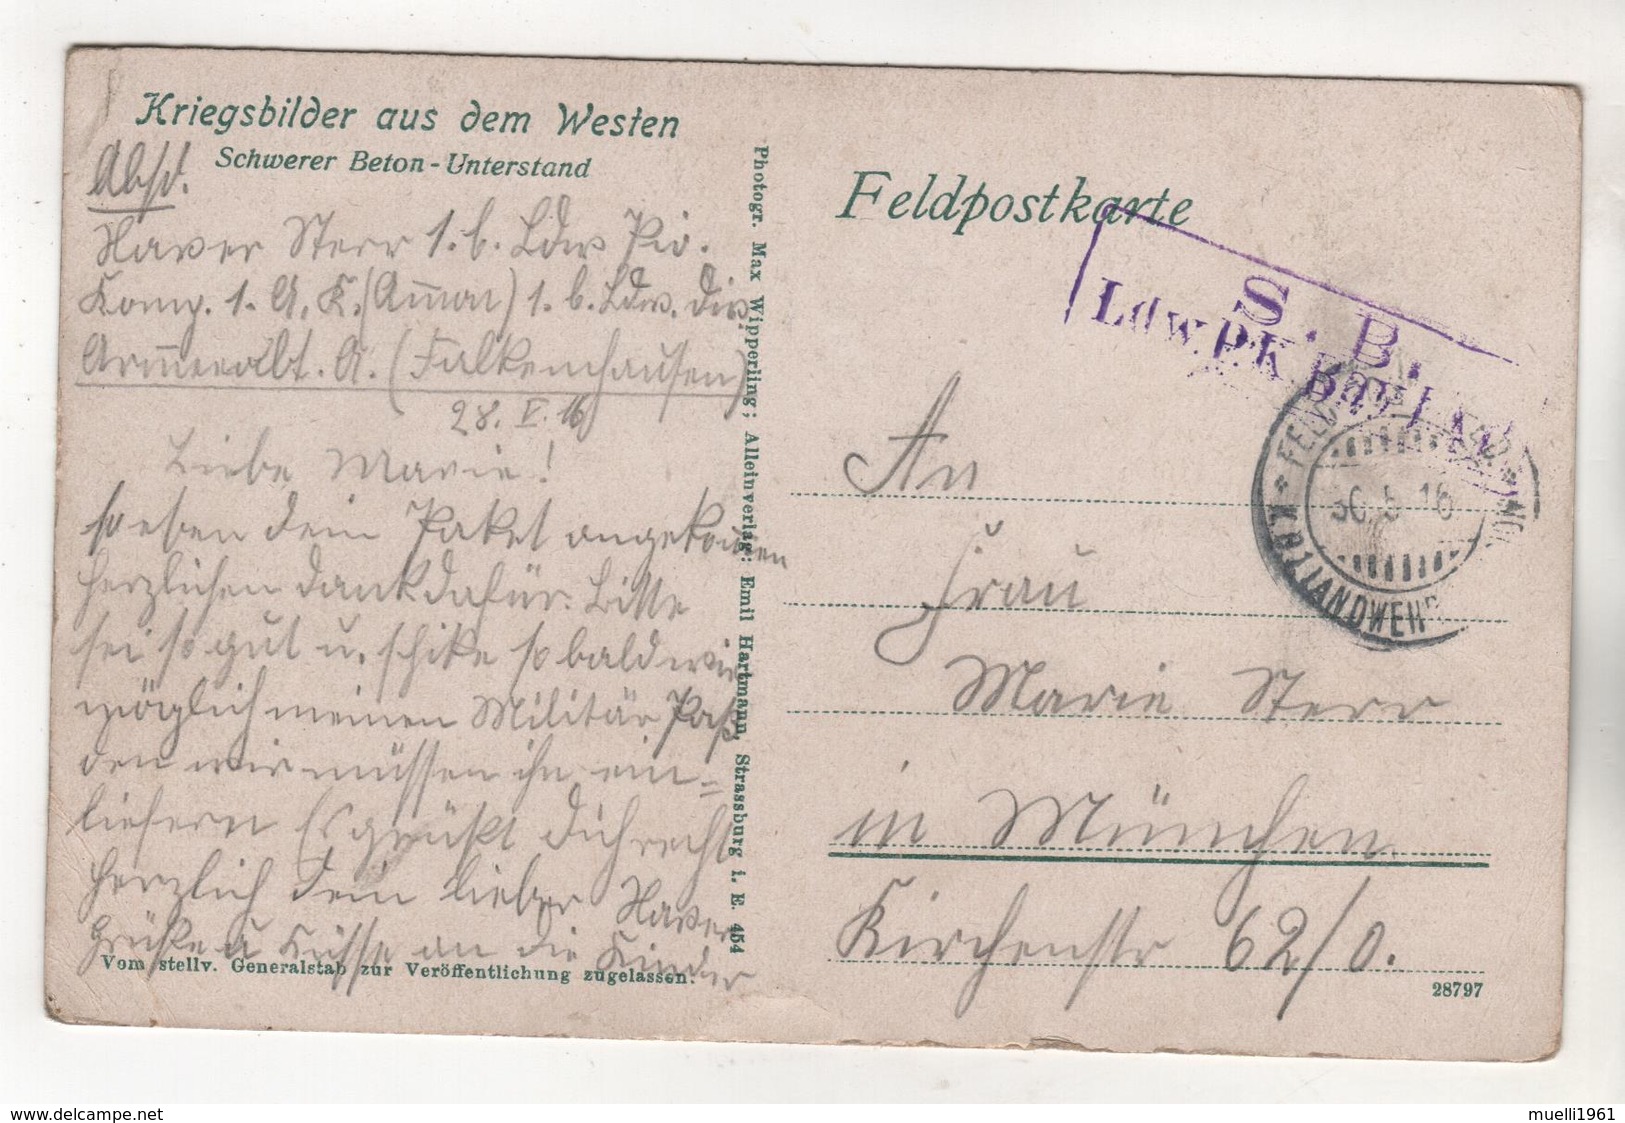 Kriegsbilder aus dem Westen
Schwerer Beton-Unterstand
Absd.
Xaver Sterr 1. b. Ldw Pio.
Komp. 1. A. K. (Ammon) 1. b. Ldw. Div.
Armeeabt. A. (Falkenhausen)
28. V. 16
Liebe Marie!
soeben dein Paket angekommen
herzlichen Dank dafür. Bitte
sei so gut u. schike so bald wie
möglich meinen Militär Paß
den wir müssen ihn ein=
liefern Es grüßt dich recht
herzlich dein lieber Xaver
Grüße u Küsse an die Kinder
Vom stellv. Generalstab zur Veröffentlichung zugelassen.
Photogr. Max Wipperling; Alleinverlag: Emil Hartmann, Strassburg i. E. 454
Feldpostkarte
S. B.
Ldw. P. K.
30.5.16
K.B.1.LANDWEHR
An
Frau
Marie Sterr
in München
Kirchenstr 62/0.
28797
www.delcampe.net
muelli1961